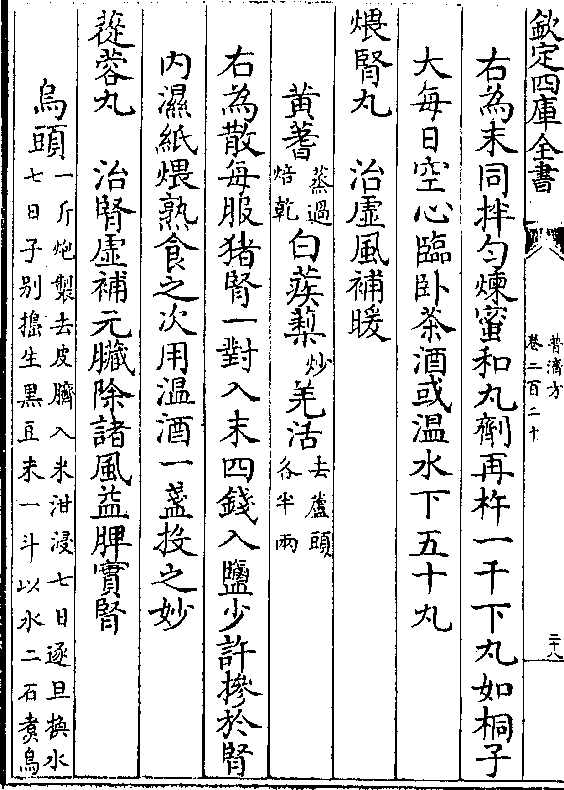 欽定四庫全書
普濟方
卷二百二十
二十八
右為末同拌勻煉蜜和丸劑再杵一千下丸如桐子
大每日空心臨卧茶酒或温水下五十丸
煨腎丸　治虛風補暖
黄蓍蒸過焙乾白蒺蔾炒羌活去蘆頭各半兩
右為散每服猪腎一對入末四錢入鹽少許摻於腎
内濕紙煨熟食之次用温酒一盞投之妙
蓯蓉丸　治腎虛補元臟除諸風益脾實腎
烏頭一斤炮製去皮臍入米泔浸七日逐旦換水七日子别搗生黒豆末一斗以水二石煑烏